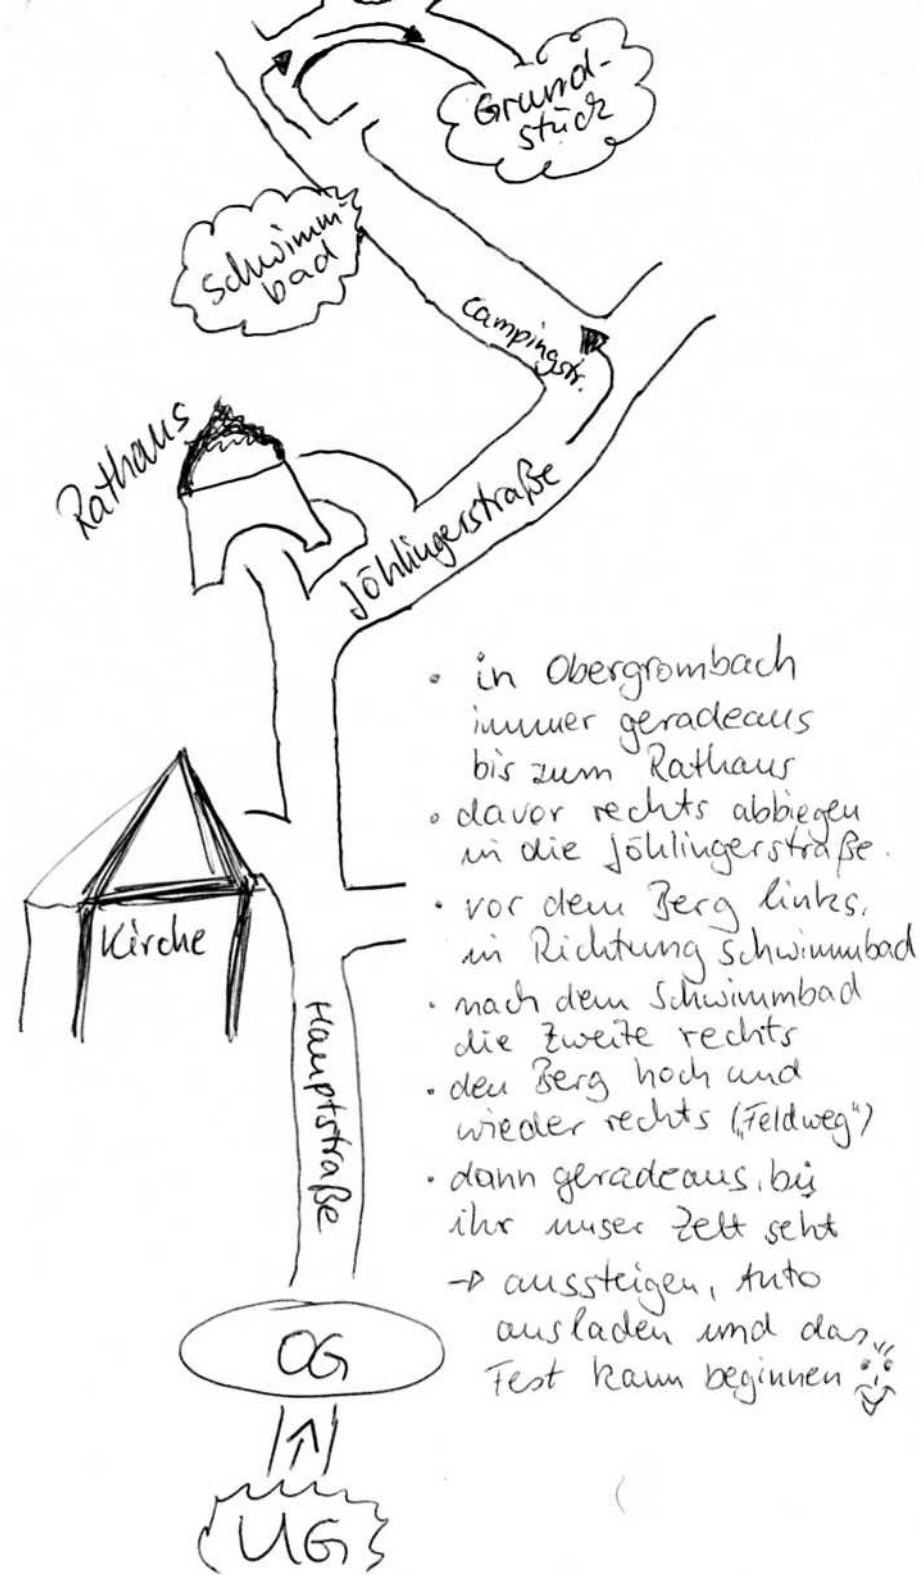 Grund-
stück
Schwimm-
bad
Campingstr.
Rathaus
Jöhlingerstraße
• in Obergrombach
immer geradeaus
bis zum Rathaus
• davor rechts abbiegen
in die Jöhlingerstraße.
• vor dem Berg links,
in Richtung Schwimmbad
• nach dem Schwimmbad
die zweite rechts
• den Berg hoch und
wieder rechts („Feldweg“)
• dann geradeaus, bis
ihr unser Zelt seht
→ aussteigen, Auto
ausladen und das
Fest kann beginnen
Kirche
Hauptstraße
OG
UG